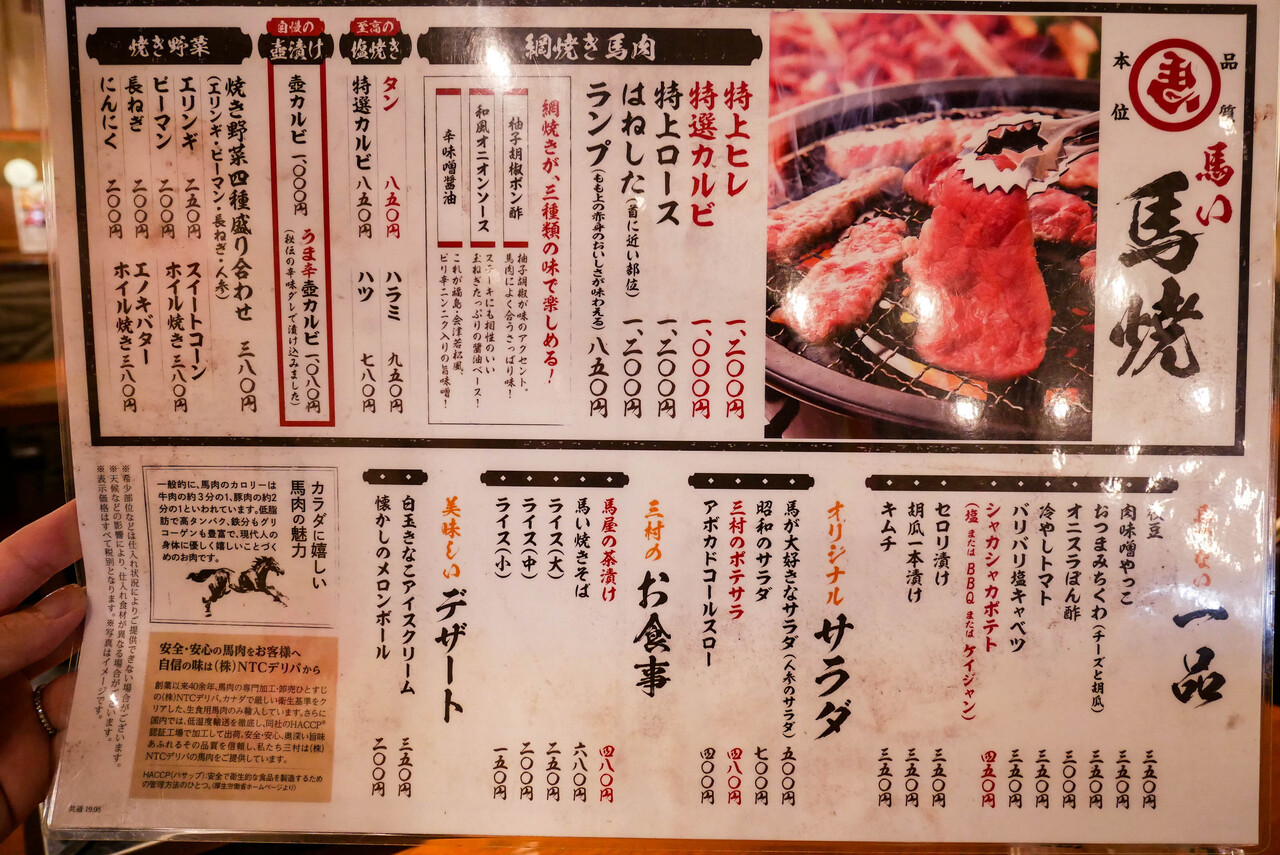 本位
品質
馬い
馬焼
網焼き馬肉
特上ヒレ 一、二〇〇円
特選カルビ 一、〇〇〇円
特上ロース 一、二〇〇円
はねした(首に近い部位) 一、二〇〇円
ランプ(もも上の赤身のおいしさが味わえる) 八五〇円
網焼きが、三種類の味で楽しめる!
柚子胡椒ポン酢
柚子胡椒が味のアクセント。
馬肉によく合うさっぱり味!
和風オニオンソース
ステーキにも相性のいい
玉ねぎたっぷりの醤油ベース!
辛味噌醤油
これが福島・会津若松風、
ピリ辛ニンニク入りの旨味噌!
至高の
塩焼き
タン 八五〇円
ハラミ 九五〇円
特選カルビ 八五〇円
ハツ 七八〇円
自慢の
壺漬け
壺カルビ 一、〇〇〇円
うま辛壺カルビ 一、〇八〇円
(秘伝の辛味ダレで漬け込みました)
焼き野菜
焼き野菜四種盛り合わせ 三八〇円
(エリンギ・ピーマン・長ねぎ・人参)
エリンギ 二五〇円
スイートコーン
ホイル焼き 三八〇円
ピーマン 二〇〇円
長ねぎ 二〇〇円
エノキバター
ホイル焼き 三八〇円
にんにく 二〇〇円
ない一品
豆 三五〇円
肉味噌やっこ 三五〇円
おつまみちくわ(チーズと胡瓜) 三五〇円
オニスラぽん酢 三〇〇円
冷やしトマト 三五〇円
バリバリ塩キャベツ 三五〇円
シャカシャカポテト 四五〇円
(塩 または BBQ または ケイジャン)
セロリ漬け 三五〇円
胡瓜一本漬け 三五〇円
キムチ 三五〇円
オリジナル サラダ
馬が大好きなサラダ(人参のサラダ) 五〇〇円
昭和のサラダ 七〇〇円
三村のポテサラ 四八〇円
アボカドコールスロー 四〇〇円
三村の お食事
馬屋の茶漬け 四八〇円
馬い焼きそば 六八〇円
ライス(大) 二五〇円
ライス(中) 二〇〇円
ライス(小) 一五〇円
美味しい デザート
白玉きなこアイスクリーム 三五〇円
懐かしのメロンボール 二〇〇円
カラダに嬉しい
馬肉の魅力
一般的に、馬肉のカロリーは
牛肉の約3分の1、豚肉の約2
分の1といわれています。低脂
肪で高タンパク、鉄分もグリ
コーゲンも豊富で、現代人の
身体に優しく嬉しいことづく
めのお肉です。
安全・安心の馬肉をお客様へ
自信の味は(株)NTCデリバから
創業以来40余年、馬肉の専門加工・卸売ひとすじ
の(株)NTCデリバ。カナダで厳しい衛生基準をク
リアした、生食用馬肉のみ輸入しています。さらに
国内では、低温度輸送を徹底し、同社のHACCP®
認証工場で加工して出荷。安全・安心、奥深い旨味
あふれるその品質を信頼し、私たち三村は(株)
NTCデリバの馬肉をご提供しています。
HACCP(ハサップ):安全で衛生的な食品を製造するため
の管理方法のひとつ。(厚生労働省ホームページより)
※希少部位などは仕入れ状況によりご提供できない場合がございます。
※天候などの影響により、仕入れ食材が異なる場合がございます。
※表示価格はすべて税別となります。※写真はイメージです。
共通 19.08